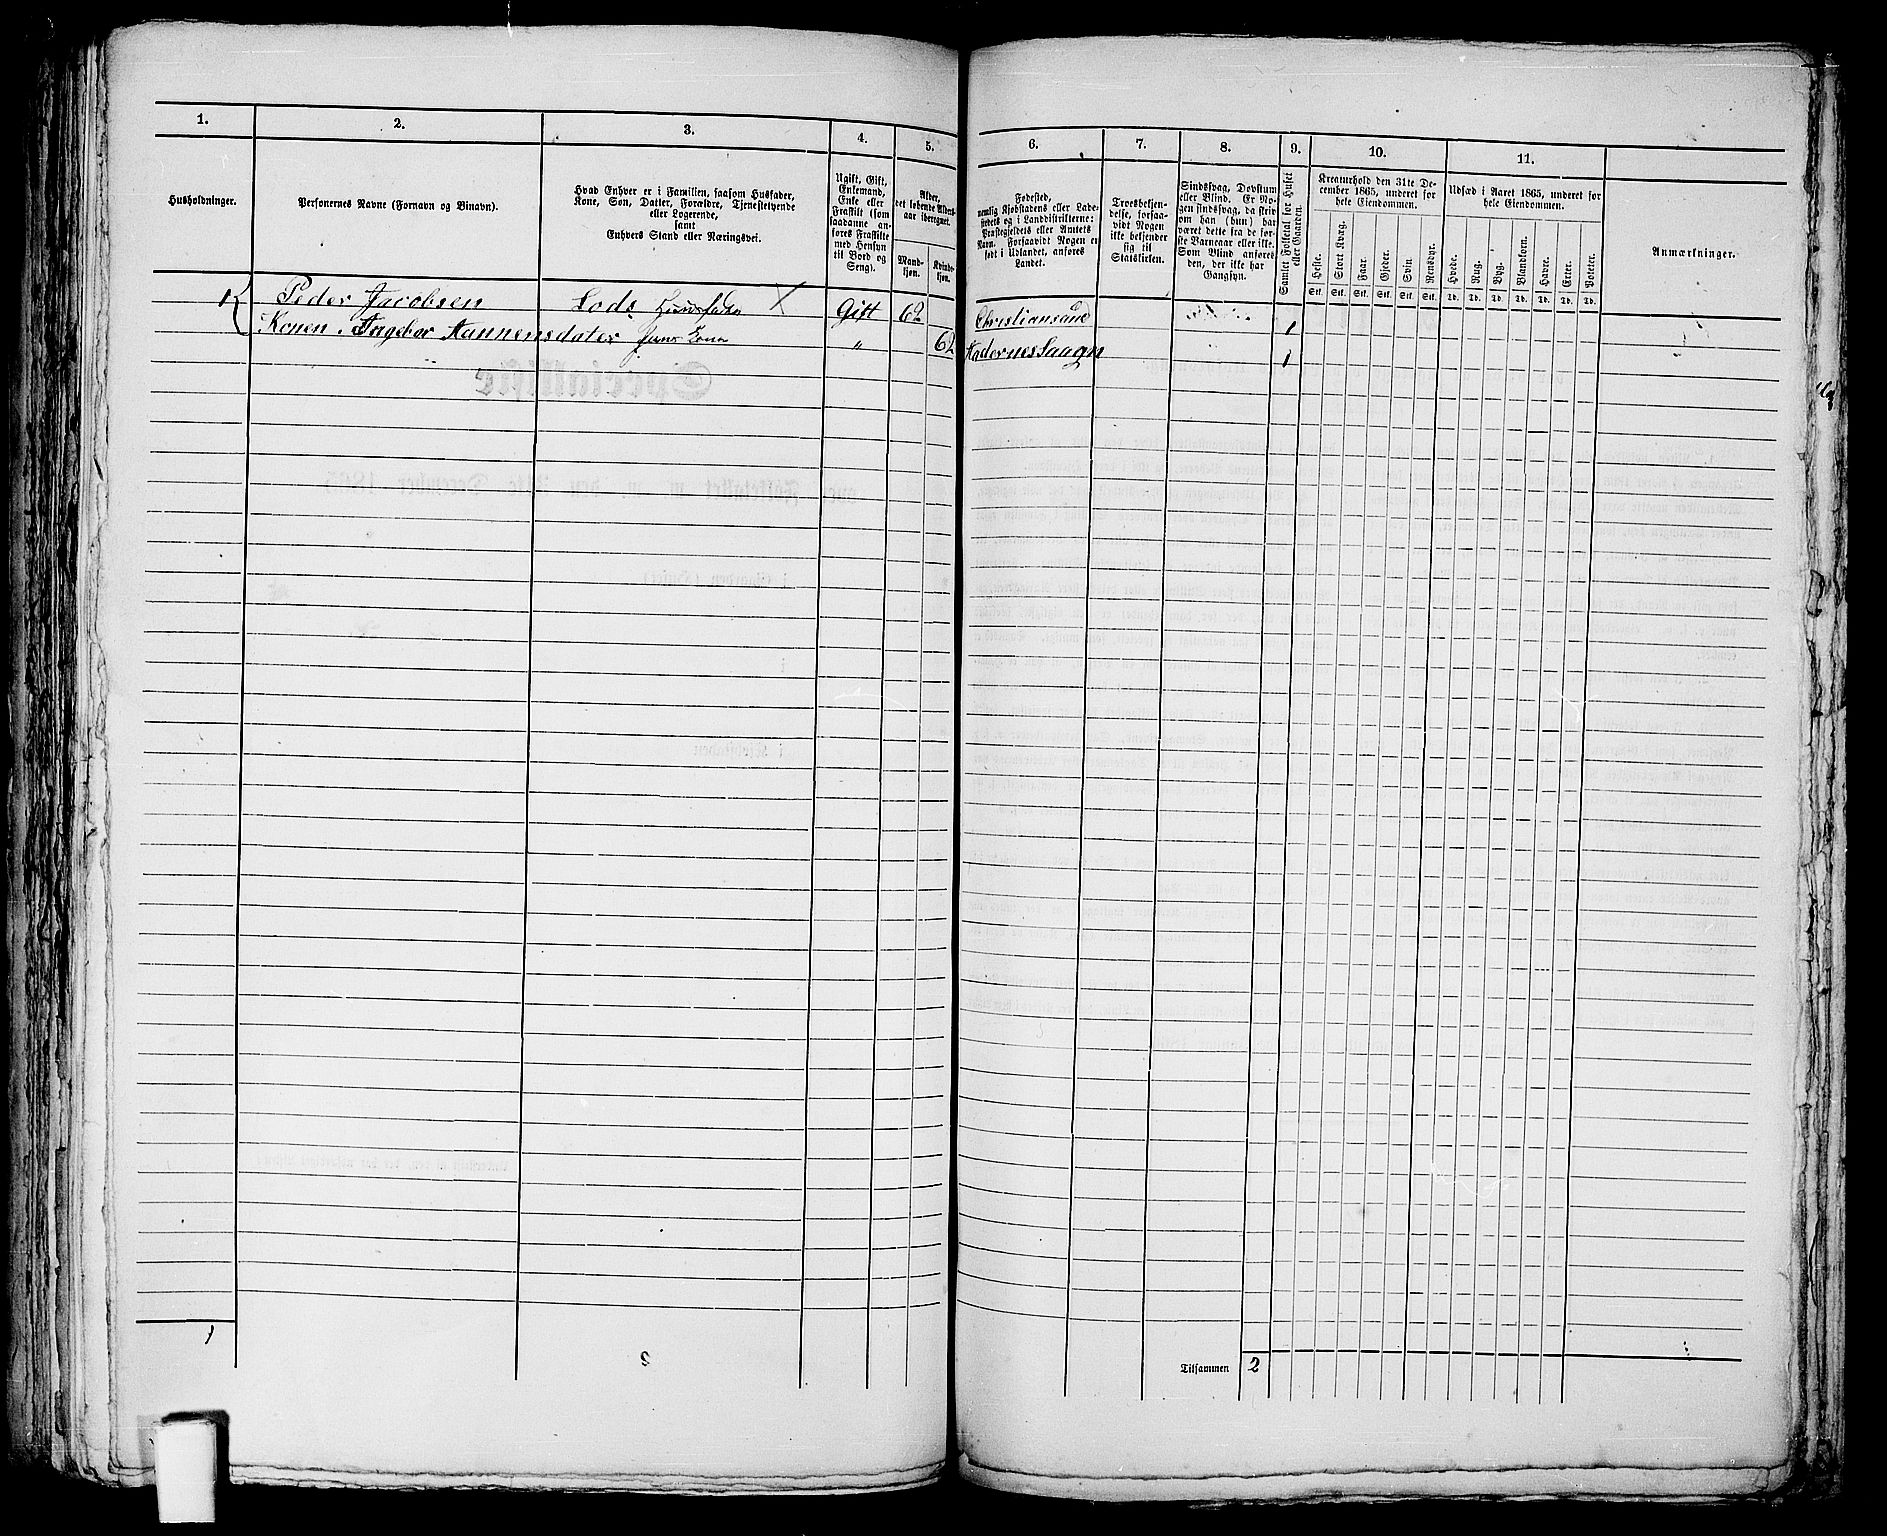 1. 2. 3. 4. 5. 6. 7. 8. 9. 10. 11.
Husholdninger.
Personernes Navne (Fornavn og Binavn).
Hvad Enhver er i Familien, saasom Husfader,
Kone, Søn, Datter, Forældre, Tjenestetyende
eller Logerende,
samt
Enhvers Stand eller Næringsvei.
Ugift, Gift,
Enkemand,
Enke eller
Fraskilt (som
saadanne an-
føres Fraskilte
med Hensyn
til Bord og
Seng).
Alder,
det løbende Alders-
aar iberegnet.
Mand-
kjøn.
Kvinde-
kjøn.
Fødested,
nemlig Kjøbstadens eller Lade-
stedets og i Landdistrikterne:
Præstegjeldets eller Amtets
Navn. Forsaavidt Nogen er
født i Udlandet, anføres
Landet.
Troesbekjen-
delse, forsaa-
vidt Nogen
ikke bekjender
sig til
Statskirken.
Sindssvag, Døvstum
eller Blind. Er No-
gen sindssvag, da skriv
om han (hun) har
været dette fra de før-
ste Barneaar eller ikke.
Som Blind anføres
den, der ikke har
Gangsyn.
Samlet Folketal for Huset
eller Gaarden.
Kreaturhold den 31te De-
cember 1865, underet for
hele Eiendommen.
Heste. Stort Kvæg. Faar. Gjeder. Svin. Rensdyr.
Stk. Stk. Stk. Stk. Stk. Stk.
Udsæd i Aaret 1865, underet for
hele Eiendommen.
Hvede. Rug. Byg. Blandkorn. Havre. Erter. Poteter.
Td. Td. Td. Td. Td. Td. Td.
Anmærkninger.
Peder Jacobsen Lods Husfader Gift 62 Christiansand 1
Konen Ingebor Hannensdater hans Kone " 62 1
1
Tilsammen 2